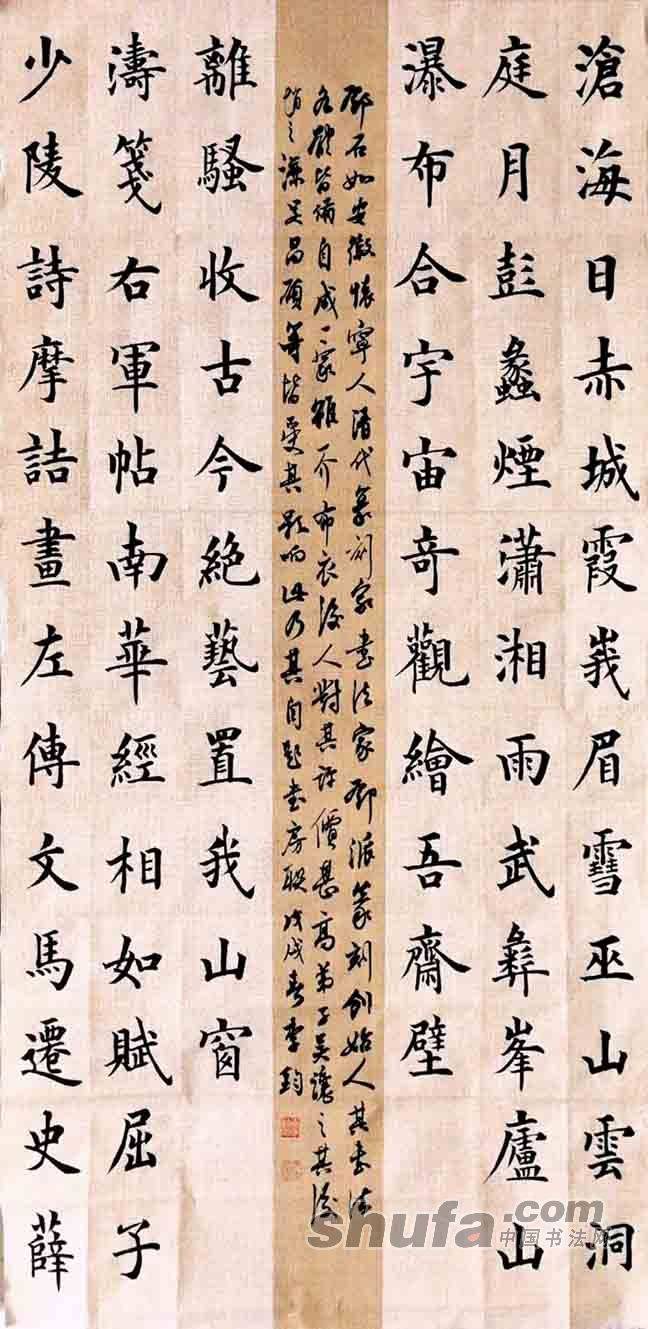 滄海日赤城霞峩眉雪巫山雲洞
庭月彭蠡煙瀟湘雨武彝峯廬山
瀑布合宇宙奇觀繪吾齋壁
鄧石如安徽懷寧人清代篆刻家書法家鄧派篆刻創始人其書法
各體皆備自成一家雖一介布衣後人對其評價甚高弟子吳讓之其後
趙之謙吳昌碩等皆受其影响此乃其自題書房联戊戌春李鈞
少陵詩摩詰畫左傳文馬遷史薛
濤箋右軍帖南華經相如賦屈子
離騷收古今絕藝置我山窗
shufa.com
中国书法网